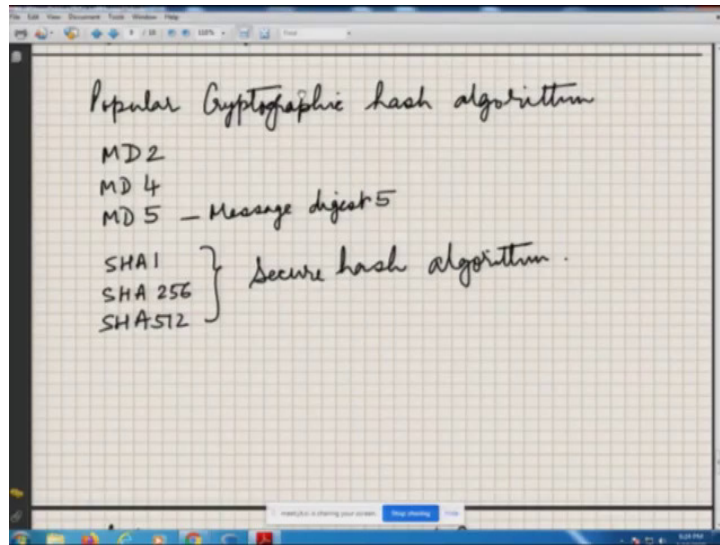 File Edit View Document Tools Window Help
9 / 18 110% Find
Popular Cryptographic hash algorithm
MD2
MD 4
MD 5 – Message digest 5
SHA1
SHA 256 Secure hash algorithm.
SHA512
is sharing your screen. Stop sharing Hide